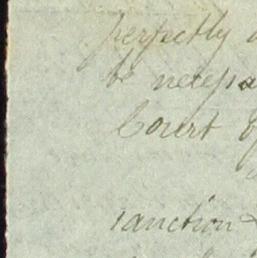 perfectly
be necessa
Court of
sanction